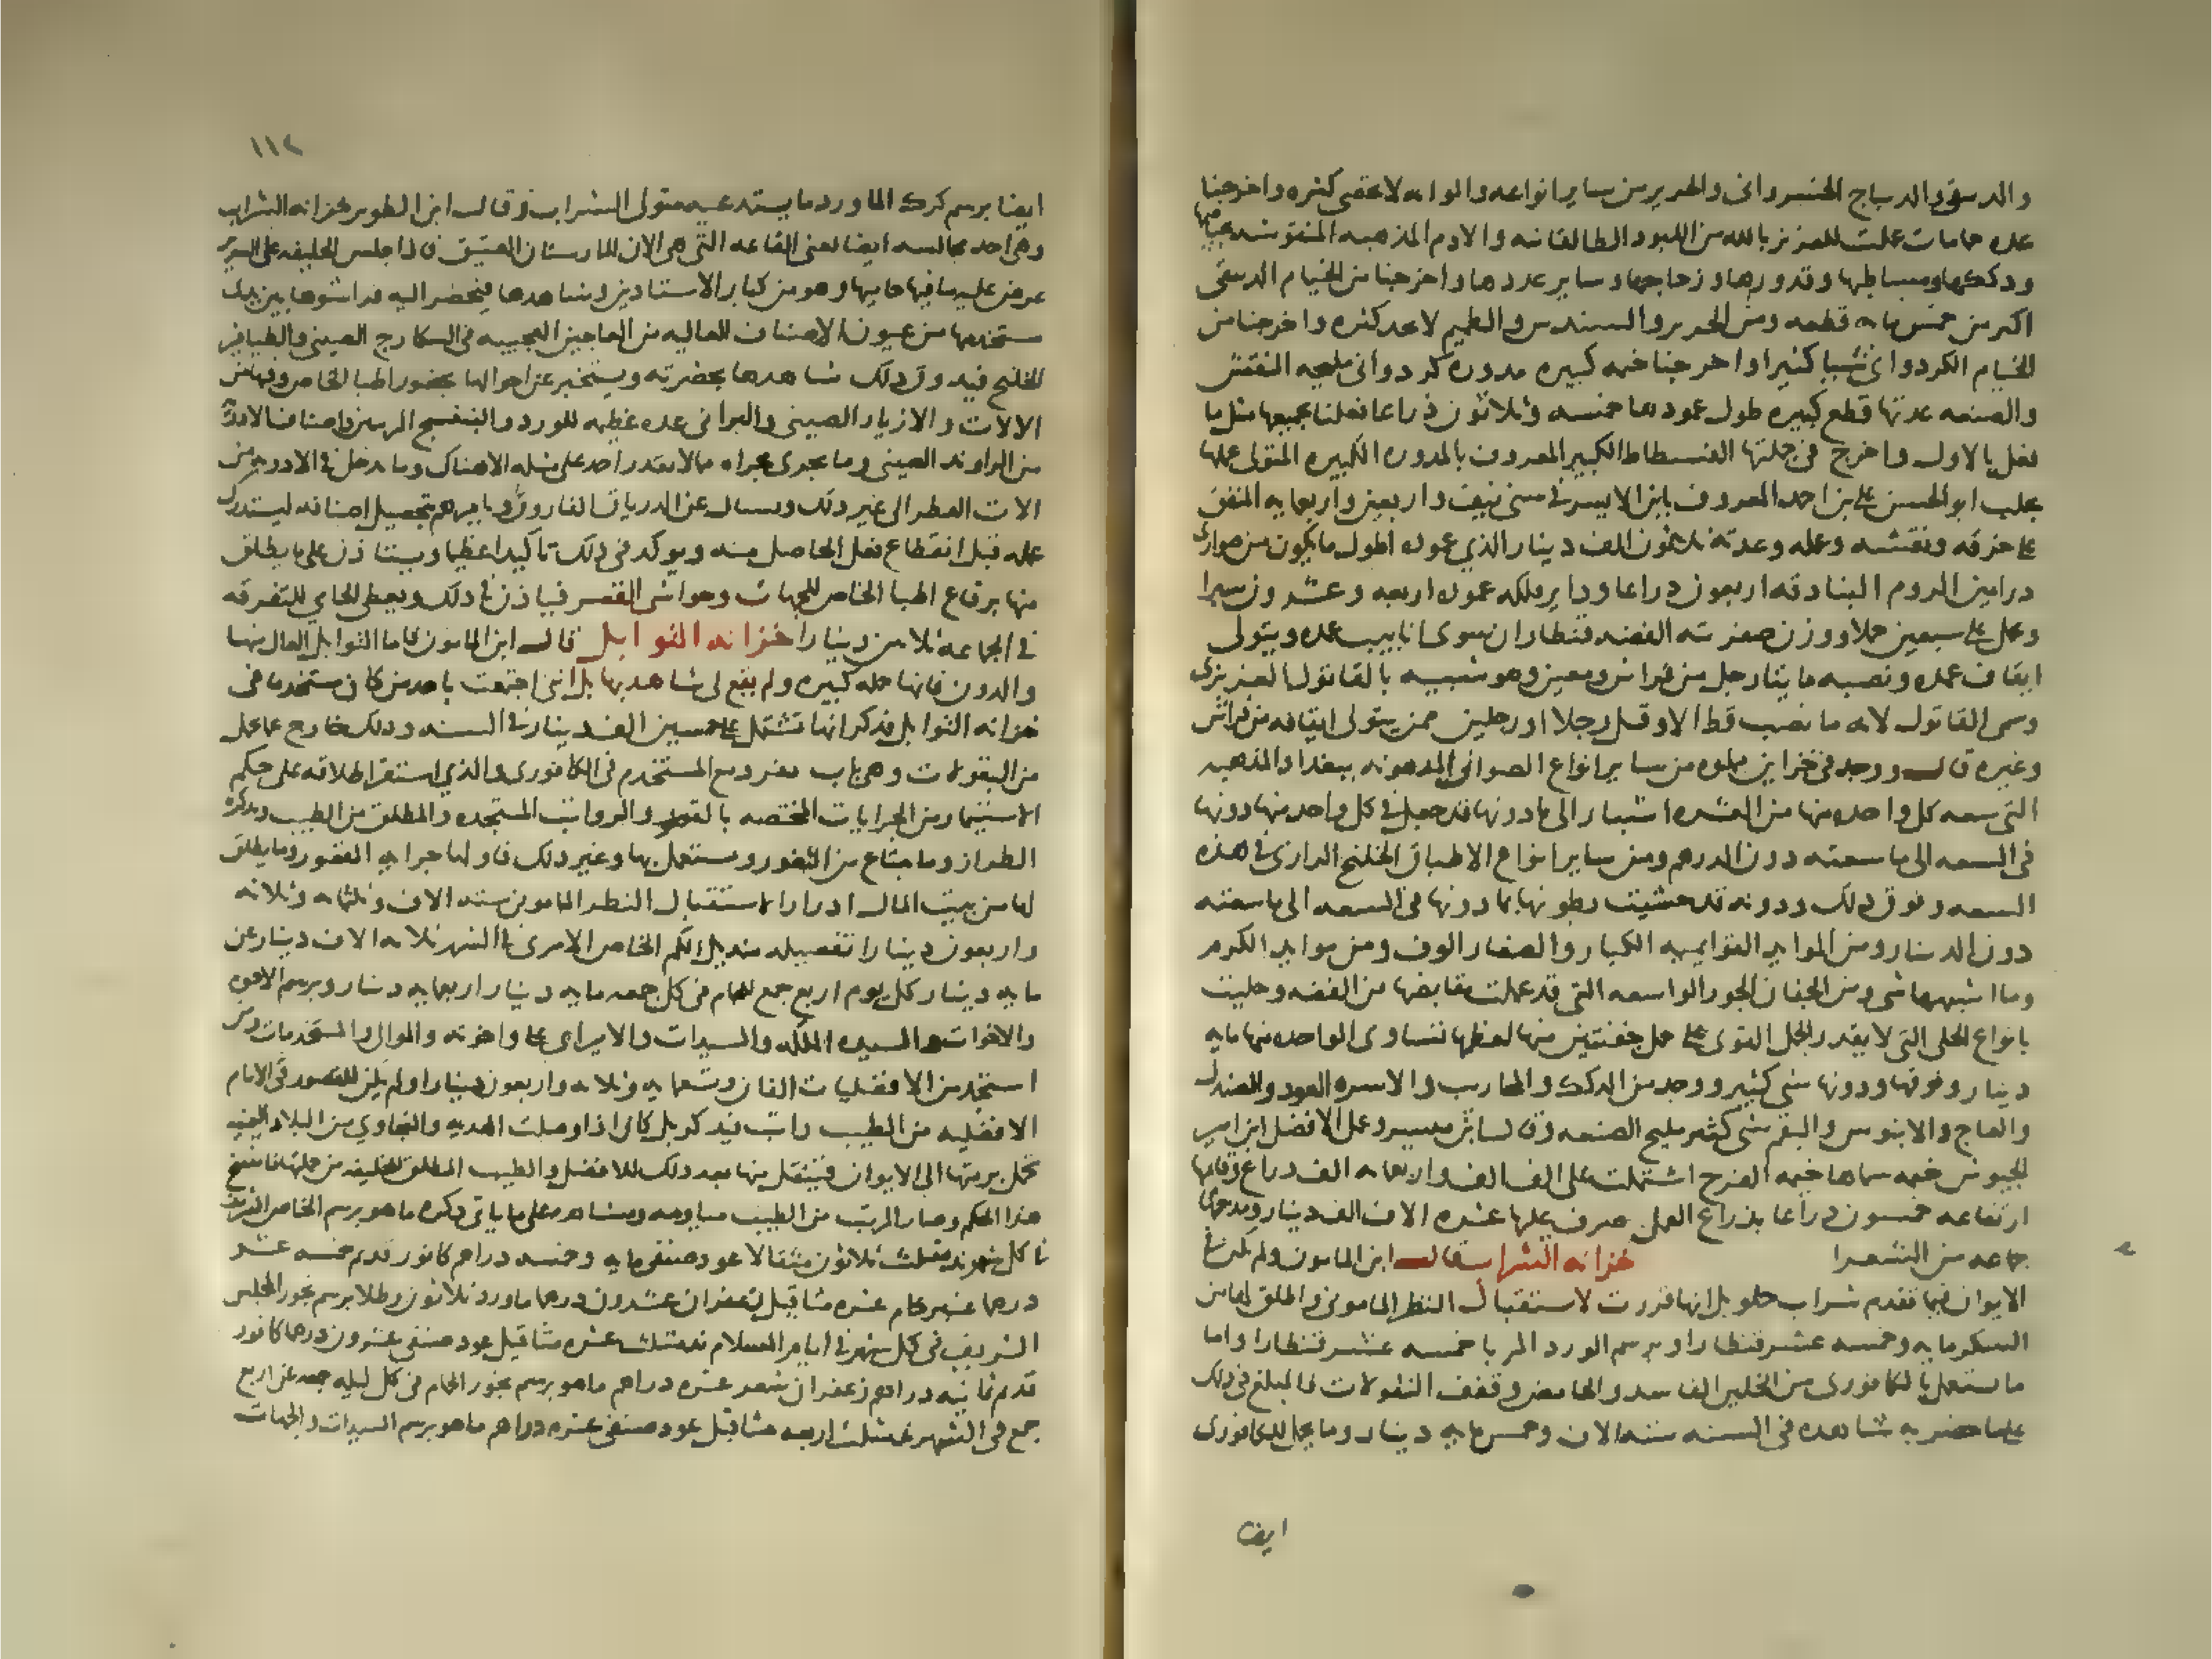 والدبيقي والديباج الخسرواني والحرير من ساير انواعه والوانه لا تحصى كثره واخرجنا
عده حمامات عملت للعزيز بالله من اللبود الطالقانيه والادم المذهبه المنقوشه بحياضها
ودككها ومساطبها وقدورها وزجاجها وساير عددها واخرجنا من الخيام الدبيقي
اكبر من خمس مايه قطعه ومن الحرير والسندس والطميم لا يعد كثره واخرجنا من
الخيام الكردواني شيا كثيرا واخرجنا خيمه كبيره مدوره كردواني مليحه النقش
والصنعه عدتها قطع كبيره طول عمودها خمسه وثلاثون ذراعا فعلنا بجميعها مثل ما
فعل بالاول واخرج في جملتها الفسطاط الكبير المعروف بالمدوره الكبيره المتولى عملها
بحلب ابو الحسن علي بن احمد المعروف بابن الايسر في سني نيف واربعين واربعمايه المنفق
على خرقه ونقشه وعمله وعدته ثلاثون الف دينار الذي عموده اطول ما يكون من صواري
درامين الروم البنادقه اربعون ذراعا وداير فلكه عموده اربعه وعشرون شبرا
وحمل على سبعين جملا ووزن صفريته الفضه قنطاران سوى انابيب عده ويتولى
ايقاف عمده ونصبه مايتا رجل من فراش ومعين وهو شبيه بالقاتول العزيزي
وسمي القاتول لانه ما نصب قط الا وقتل رجلا او رجلين ممن يتولى ايقافه من فراش
وغيره قال ووجد في خزاين مملوه من ساير انواع الصواني المدهونه ببغداد المذهبه
التي سعه كل واحده منها من العشره اشبار الى ما دونها قد جعل في كل واحد منها دونها
في السعه الى ما سعته دون الدرهم ومن ساير انواع الاطباق الخلنج الرازي في هذه
السعه وفوق ذلك ودونه قد حشيت بطونها بما دونها في السعه الى ما سعته
دون الدينار ومن الموايد القوايميه الكبار والصغار الوف ومن موايد الكرم
وما اشبهها شي ومن الجفان الجور الواسعه التي قد عملت مقابضها من الفضه وحليت
بانواع الحلي التي لا يقدر الجمل القوي على حمل جفنتين منها لعظمها تساوى الواحده منها مايه
دينار وفوقها ودونها شي كثير ووجد من الدكك والمحاريب والاسره العود والصندل
والعاج والابنوس والبقم شي كثير مليح الصنعه وقال ابن ميسر وعمل الافضل ابن امير
الجيوش خيمه سماها خيمه الفرح اشتملت على الف الف واربعمايه الف ذراع وقايمها
ارتفاعه خمسون ذراعا بذراع العمل صرف عليها عشره الاف الف دينار ومدحها
جماعه من الشعرا خزانه الشراب قال ابن المامون ولم يكن في
الايوان فيما تقدم شراب حلو بل انها قررت لاستقبال النظر الماموني واطلق لها من
السكر مايه وخمسه عشر قنطارا وبرسم الورد المربا خمسه عشر قنطارا واما
ما يستعمل بالكافوري من الخلين الفاسد والحامض وقفف البقولات فالمبلغ في ذلك
على ما حضر به شاهده في السنه سته الاف وخمس مايه دينار وما يحمل للكافوري
ايضا
١١٢
ايضا برسم كرك الماورد ما يستدعيه متولي الشراب وقال ابن الطوير خزانه الشراب
وهي احد مجالسه ايضا يعني القاعه التي هي الان المارستان العتيق فاذا جلس الخليفه على السرير
عرض عليه ما فيها حاميها وهو من كبار الاستادين وشاهدها فيحضر اليه فراشوها بين يدي
مستخدمها من عيون الاصناف العاليه من المعاجين العجيبه في السكارج الصيني والطيافير
الخلنج فيذوق ذلك شاهدها بحضرته ويستخبر عن احوالها بحضور اطبا الخاص وفيها من
الالات والازيار الصيني والبراني عده عظيمه للورد والبنفسج المرسين واصناف الادويه
من الراوند الصيني وما يجري مجراه مالا يقدر احد على مثله الا هناك وما يدخل في الادويه من
الات العطر الى غير ذلك ويسال عن الدرياق الفاروق ويامرهم بتحصيل اصنافه ليستدرك
عمله قبل انقطاع نقل الحاصل منه ويوكد في ذلك تاكيدا عظيما ويستاذن على ما يطلق
منها برقاع اطبا الخاص للجهات وحواشي القصر فياذن في ذلك ويعطي الحامي للتفرقه
في الجماعه ثلاثين دينارا خزانه التوابل قال ابن المامون فاما التوابل العال منها
والدون فانها جمله كبيره ولم يقع لي شاهد بها بل انني اجتمعت باحد من كان مستخدما في
خزانه التوابل فذكر انها تشتمل على خمسين الف دينار في السنه وذلك خارج عما يحمل
من البقولات وهي باب مفرد مع المستخدم في الكافوري والذي استقر اطلاقه على حكم
الاستيمار من الجرايات المختصه بالقصور والرواتب المستجده والمطلق من الطيب ويذكره
الطراز وما يبتاع من الثغور ويستعمل بها وغير ذلك فاولها جرايه القصور وما يطلق
لها من بيت المال ادرارا لاستقبال النظر الماموني سته الاف وثلثمايه وثلاثه
واربعون دينارا تفصيله منديل الكم الخاص الامري في الشهر ثلاثه الاف دينار عن
مايه دينار كل يوم اربع جمع الحمام في كل جمعه مايه دينار اربعمايه دينار وبرسم الاخوه
والاخوات والسيده الملكه والسيدات والامير ابي علي واخوته والموالي والمستخدمات ومن
استجد من الافضليات الفان وتسعمايه وثلاثه واربعون دينارا ولم يكن للقصور في الايام
الافضليه من الطيب راتب فيذكر بل كان اذا وصلت الهديه والتجاوي من البلاد اليمنيه
تحمل برمتها الى الايوان فينتقل منها بعد ذلك للافضل والطيب المطلق للخليفه من جملتها فانتسخ
هذا الحكم وصار المرتب من الطيب مياومه ومشاهره على ما ياتي ذكره ما هو برسم الخاص الشريف
في كل شهر ند مثلث ثلاثون مثقالا عود صيفي مايه وخمسه دراهم كافور قديم خمسه عشر
درهما عنبر خام عشره مثاقيل زعفران عشرون درهما ماورد ثلاثون رطلا برسم بخور المجلس
الشريف في كل شهر في ايام السلام ند مثلث عشره مثاقيل عود صيفي عشرون درهما كافور
قديم ثمانيه دراهم زعفران شعر عشره دراهم ما هو برسم بخور الحمام في كل ليله جمعه عن اربع
جمع في الشهر ند مثلث اربعه مثاقيل عود صيفي عشره دراهم ما هو برسم السيدات والجهات